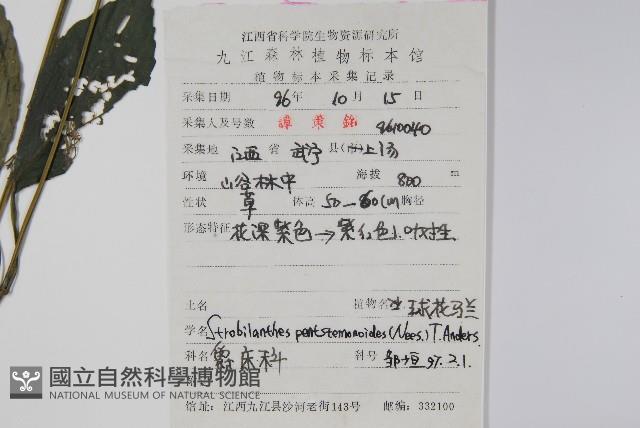 江西省科学院生物资源研究所
九江森林植物标本馆
植物标本采集记录
采集日期 96年 10月 15日
采集人及号数 譚策銘 9610040
采集地 江西 省 武宁 县(市)上汤
环境 山谷林中 海拔 800 m
性状 草 体高 50—60cm 胸径
形态特征 花深紫色→紫红色,叶对生.
土名 植物名 球花马兰
学名 Strobilanthes pentstemonoides (Nees.) T. Anders.
科名 爵床科 科号 邹垣 97.2.1.
國立自然科學博物館
NATIONAL MUSEUM OF NATURAL SCIENCE
馆址:江西九江县沙河老街143号 邮编:332100